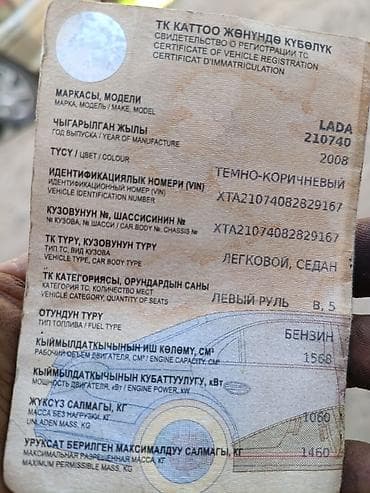 ТК КАТТОО ЖӨНҮНДӨ КҮБӨЛҮК
СВИДЕТЕЛЬСТВО О РЕГИСТРАЦИИ ТС
CERTIFICATE OF VEHICLE REGISTRATION
CERTIFICAT D'IMMATRICULATION
МАРКАСЫ, МОДЕЛИ
МАРКА, МОДЕЛЬ / MAKE, MODEL
LADA
210740
ЧЫГАРЫЛГАН ЖЫЛЫ
ГОД ВЫПУСКА / YEAR OF MANUFACTURE
2008
ТҮСҮ / ЦВЕТ / COLOUR
ТЕМНО-КОРИЧНЕВЫЙ
ИДЕНТИФИКАЦИЯЛЫК НОМЕРИ (VIN)
ИДЕНТИФИКАЦИОННЫЙ НОМЕР (VIN)
VEHICLE IDENTIFICATION NUMBER
XTA21074082829167
КУЗОВУНУН №, ШАССИСИНИН №
№ КУЗОВА, № ШАССИ / CAR BODY №, CHASSIS №
XTA21074082829167
ТК ТҮРҮ, КУЗОВУНУН ТҮРҮ
ТИП ТС, ВИД КУЗОВА
VEHICLE TYPE, CAR BODY TYPE
ЛЕГКОВОЙ, СЕДАН
ТК КАТЕГОРИЯСЫ, ОРУНДАРДЫН САНЫ
КАТЕГОРИЯ ТС, КОЛИЧЕСТВО МЕСТ
VEHICLE CATEGORY, QUANTITY OF SEATS
ЛЕВЫЙ РУЛЬ B, 5
ОТУНДУН ТҮРҮ
ТИП ТОПЛИВА / FUEL TYPE
БЕНЗИН
КЫЙМЫЛДАТКЫЧЫНЫН ИШ КӨЛӨМҮ, СМ³
РАБОЧИЙ ОБЪЕМ ДВИГАТЕЛЯ, СМ³ / ENGINE CAPACITY, CM³
1568
КЫЙМЫЛДАТКЫЧЫНЫН КУБАТТУУЛУГУ, кВт
МОЩНОСТЬ ДВИГАТЕЛЯ, кВт / ENGINE POWER, KW
ЖҮКСҮЗ САЛМАГЫ, КГ
МАССА БЕЗ НАГРУЗКИ, КГ
UNLADEN MASS, KG
1060
УРУКСАТ БЕРИЛГЕН МАКСИМАЛДУУ САЛМАГЫ, КГ
МАКСИМАЛЬНАЯ РАЗРЕШЕННАЯ МАССА, КГ
MAXIMUM PERMISSIBLE MASS, KG
1460